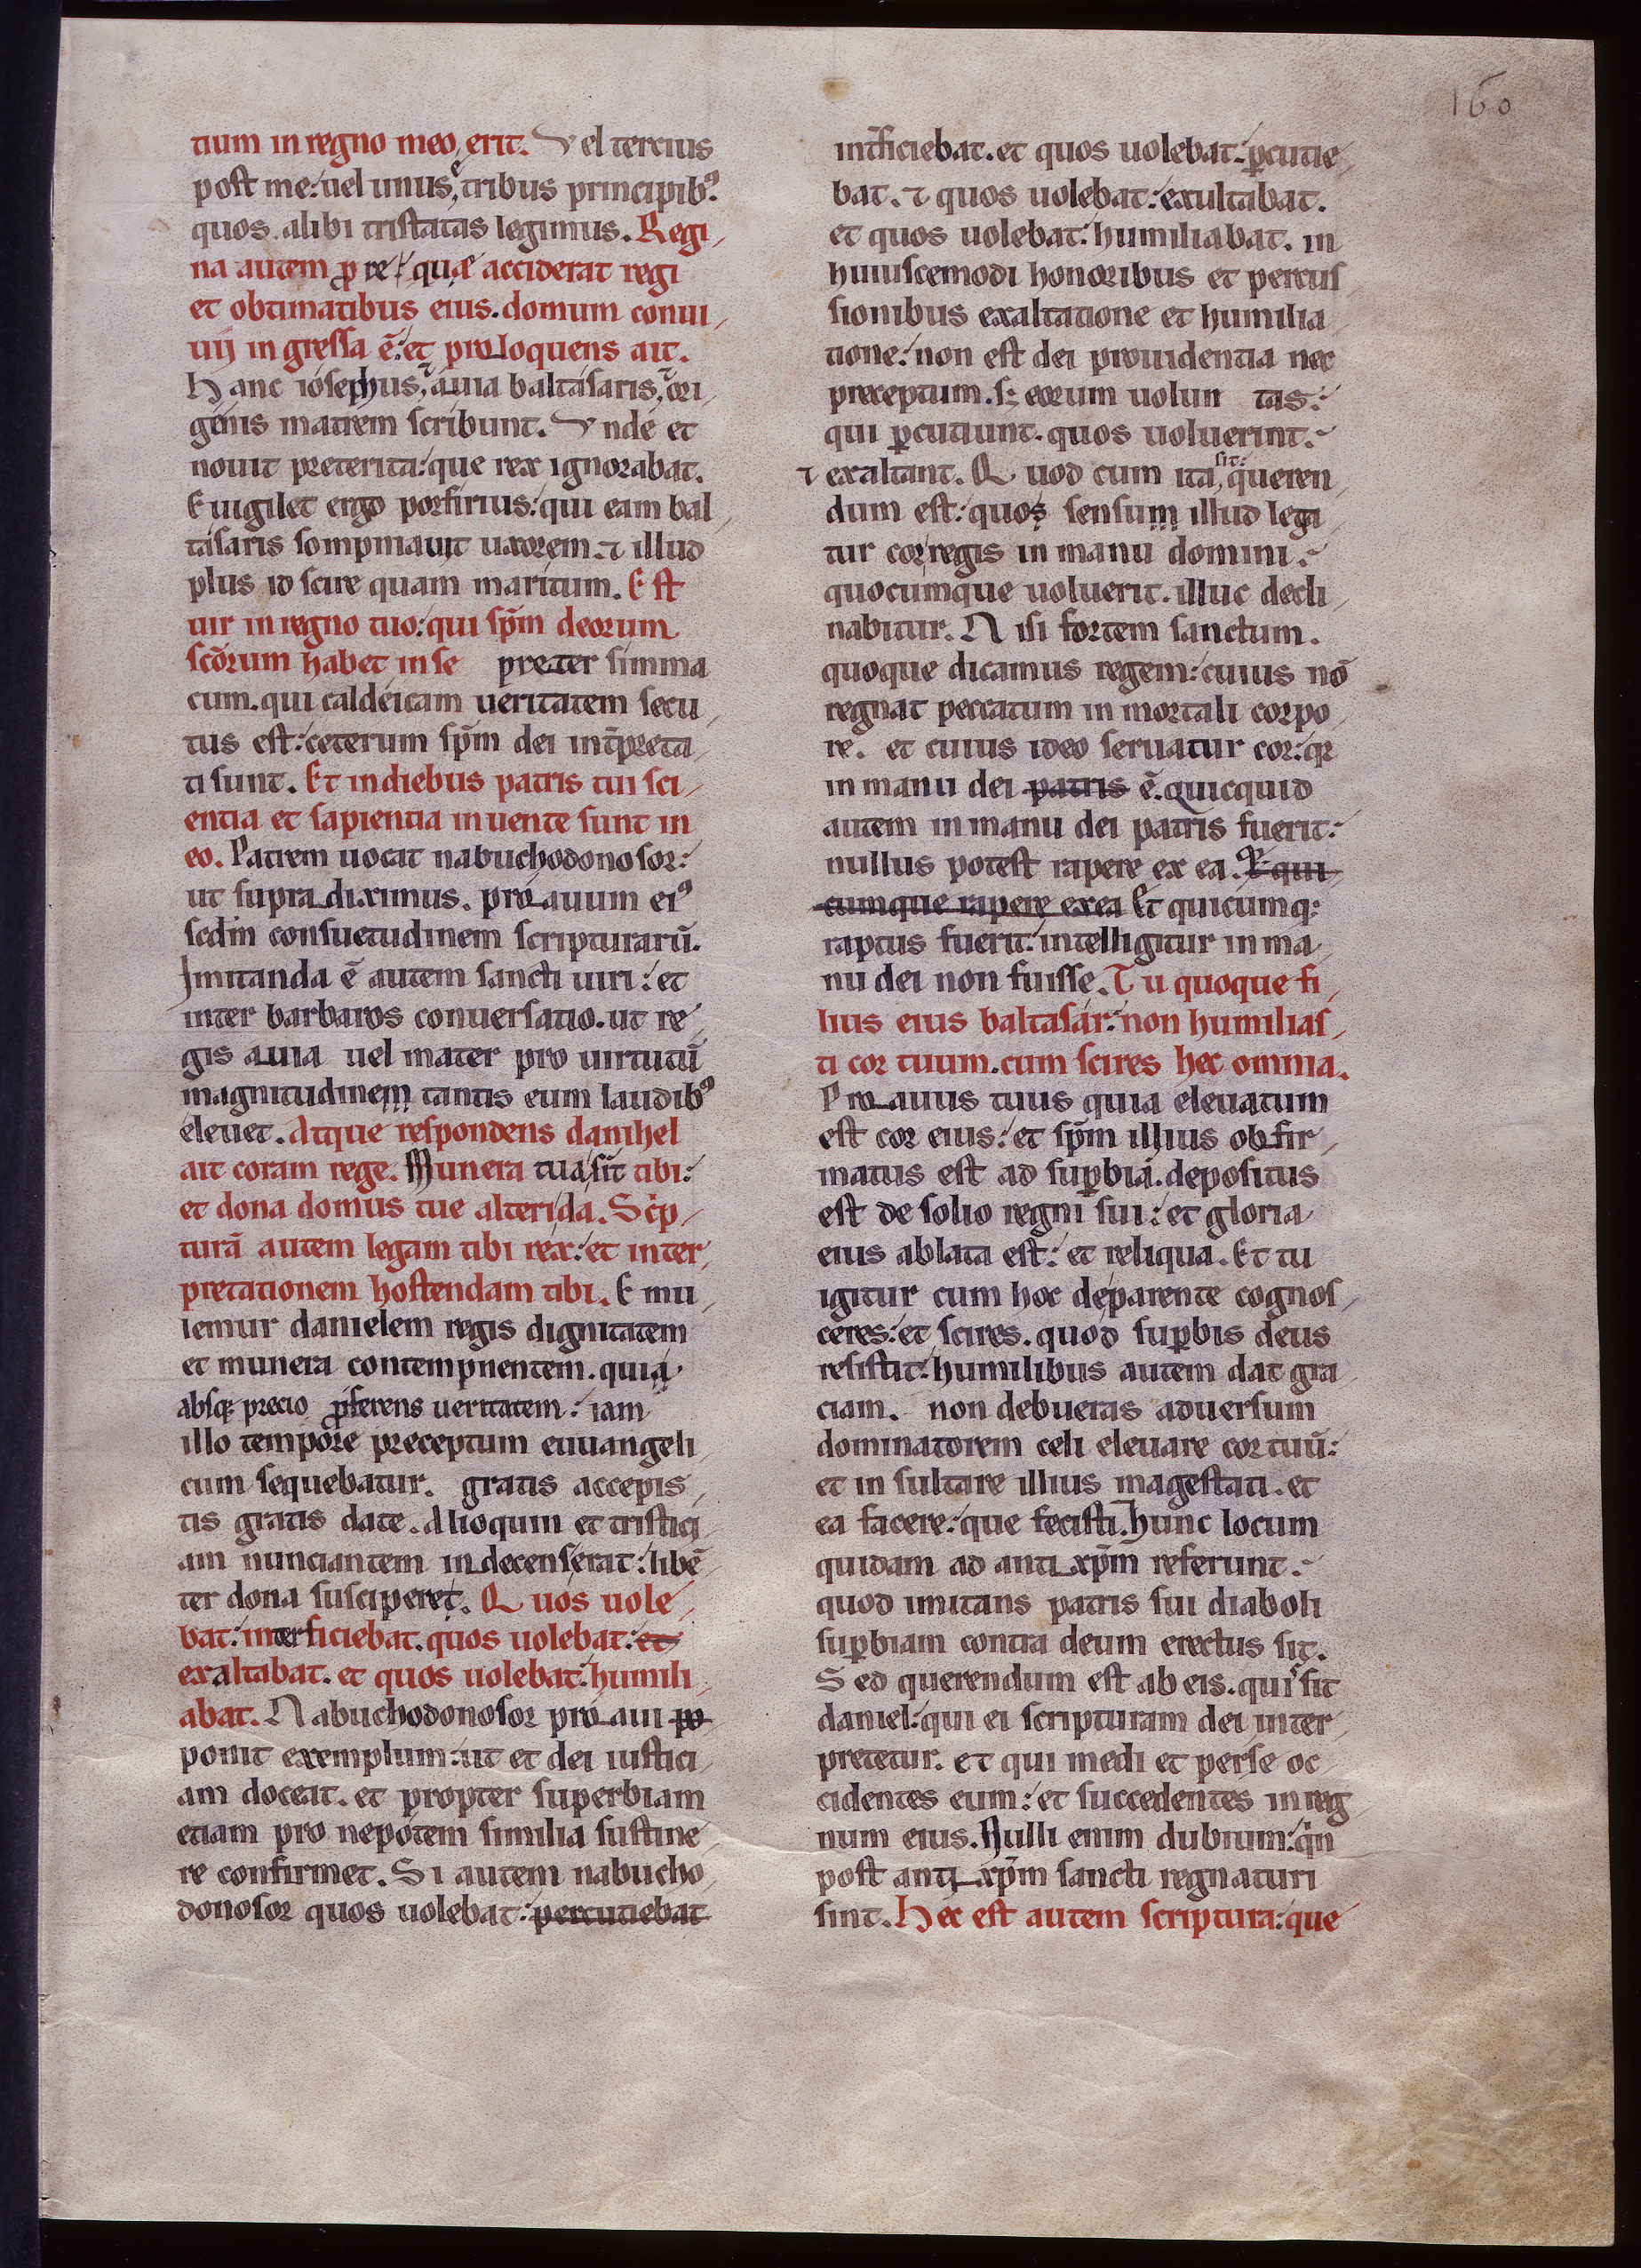 160
tium in regno meo erit. Vel tercius
post me: uel unus e tribus principib᷒.
quos alibi tristatas legimus. Regi
na autem ꝓ re quæ acciderat regi
et obtimatibus eius. domum conui
uij ingressa ē: et proloquens ait.
Hanc iosephus, auia baltasaris, ori
genis matrem scribunt. Vnde et
nouit preterita: que rex ignorabat.
Euigilet ergo porfirius: qui eam bal
tasaris sompniauit uxorem. ⁊ illud
plus id scire quam maritum. Est
uir in regno tuo: qui sp̄m deorum
scōrum habet in se preter simma
cum. qui caldeicam ueritatem secu
tus est: ceterum sp̄m dei int̄preta
ti sunt. Et in diebus patris tui sci
entia et sapientia inuente sunt in
eo. Patrem uocat nabuchodonosor:
ut supra diximus. proauum ei᷒
scdm̄ consuetudinem scripturarū.
Imitanda ē autem sancti uiri: et
inter barbaros conuersatio. ut re
gis auia uel mater pro uirtutū
magnitudinem tantis eum laudib᷒
eleuet. Atque respondens danihel
ait coram rege. Munera tua sīt tibi:
et dona domus tue alteri da. Scⁱp
turā autem legam tibi rex: et inter
pretationem hostendam tibi. Emu
lemur danielem regis dignitatem
et munera contempnentem. quia
absq; precio ꝓferens ueritatem: iam
illo tempore preceptum euuangeli
cum sequebatur. gratis accepis
tis gratis date. Alioquin et tristici
am nunciantem indecens erat: libē
ter dona susciperet. Quos uole
bat: interficiebat. quos uolebat: et
exaltabat. et quos uolebat: humili
abat. Nabuchodonosor proaui po
ponit exemplum: ut et dei iustici
am doceat. et propter superbiam
etiam pro nepotem similia sustine
re confirmet. Si autem nabucho
donosor quos uolebat: percutiebat
int̄ficiebat. et quos uolebat: ꝑcutie
bat. ⁊ quos uolebat: exultabat.
et quos uolebat: humiliabat. in
huiuscemodi honoribus et percus
sionibus exaltatione et humilia
tione: non est dei prouidentia nec
preceptum. s; eorum uolun tas:
qui ꝑcutiunt. quos uoluerint.
⁊ exaltant. Quod cum ita sit: queren
dum est: quos sensum illud lega
tur cor regis in manu domini.
quocumque uoluerit. illuc decli
nabitur. Nisi fortem sanctum.
quoque dicamus regem: cuius nō
regnat peccatum in mortali corpo
re. et cuius ideo seruatur cor: qr
in manu dei patris ē. quicquid
autem in manu dei patris fuerit:
nullus potest rapere ex ea. Et qui
cumque rapere ex ea Et quicumq;
raptus fuerit: intelligitur in ma
nu dei non fuisse. Tu quoque fi
lius eius baltasar: non humilias
ti cor tuum. cum scires hec omnia.
Proauus tuus quia eleuatum
est cor eius: et sp̄m illius obfir
matus est ad suꝑbiā. depositus
est de solio regni sui: et gloria
eius ablata est: et reliqua. Et tu
igitur cum hoc de parente cognos
ceres: et scires. quod suꝑbis deus
resistit: humilibus autem dat gra
ciam. non debueras aduersum
dominatorem celi eleuare cor tuū:
et insultare illius magestati. et
ea facere: que fecisti. Hunc locum
quidam ad anti xp̄m referunt.
quod imitans patris sui diaboli
suꝑbiam contra deum erectus sit.
Sed querendum est ab eis. quis sit
daniel: qui ei scripturam dei inter
pretetur. et qui medi et perse oc
cidentes eum: et succedentes in reg
num eius. Nulli enim dubium: qⁱn
post anti xp̄m sancti regnaturi
sint. Hec est autem scriptura: que